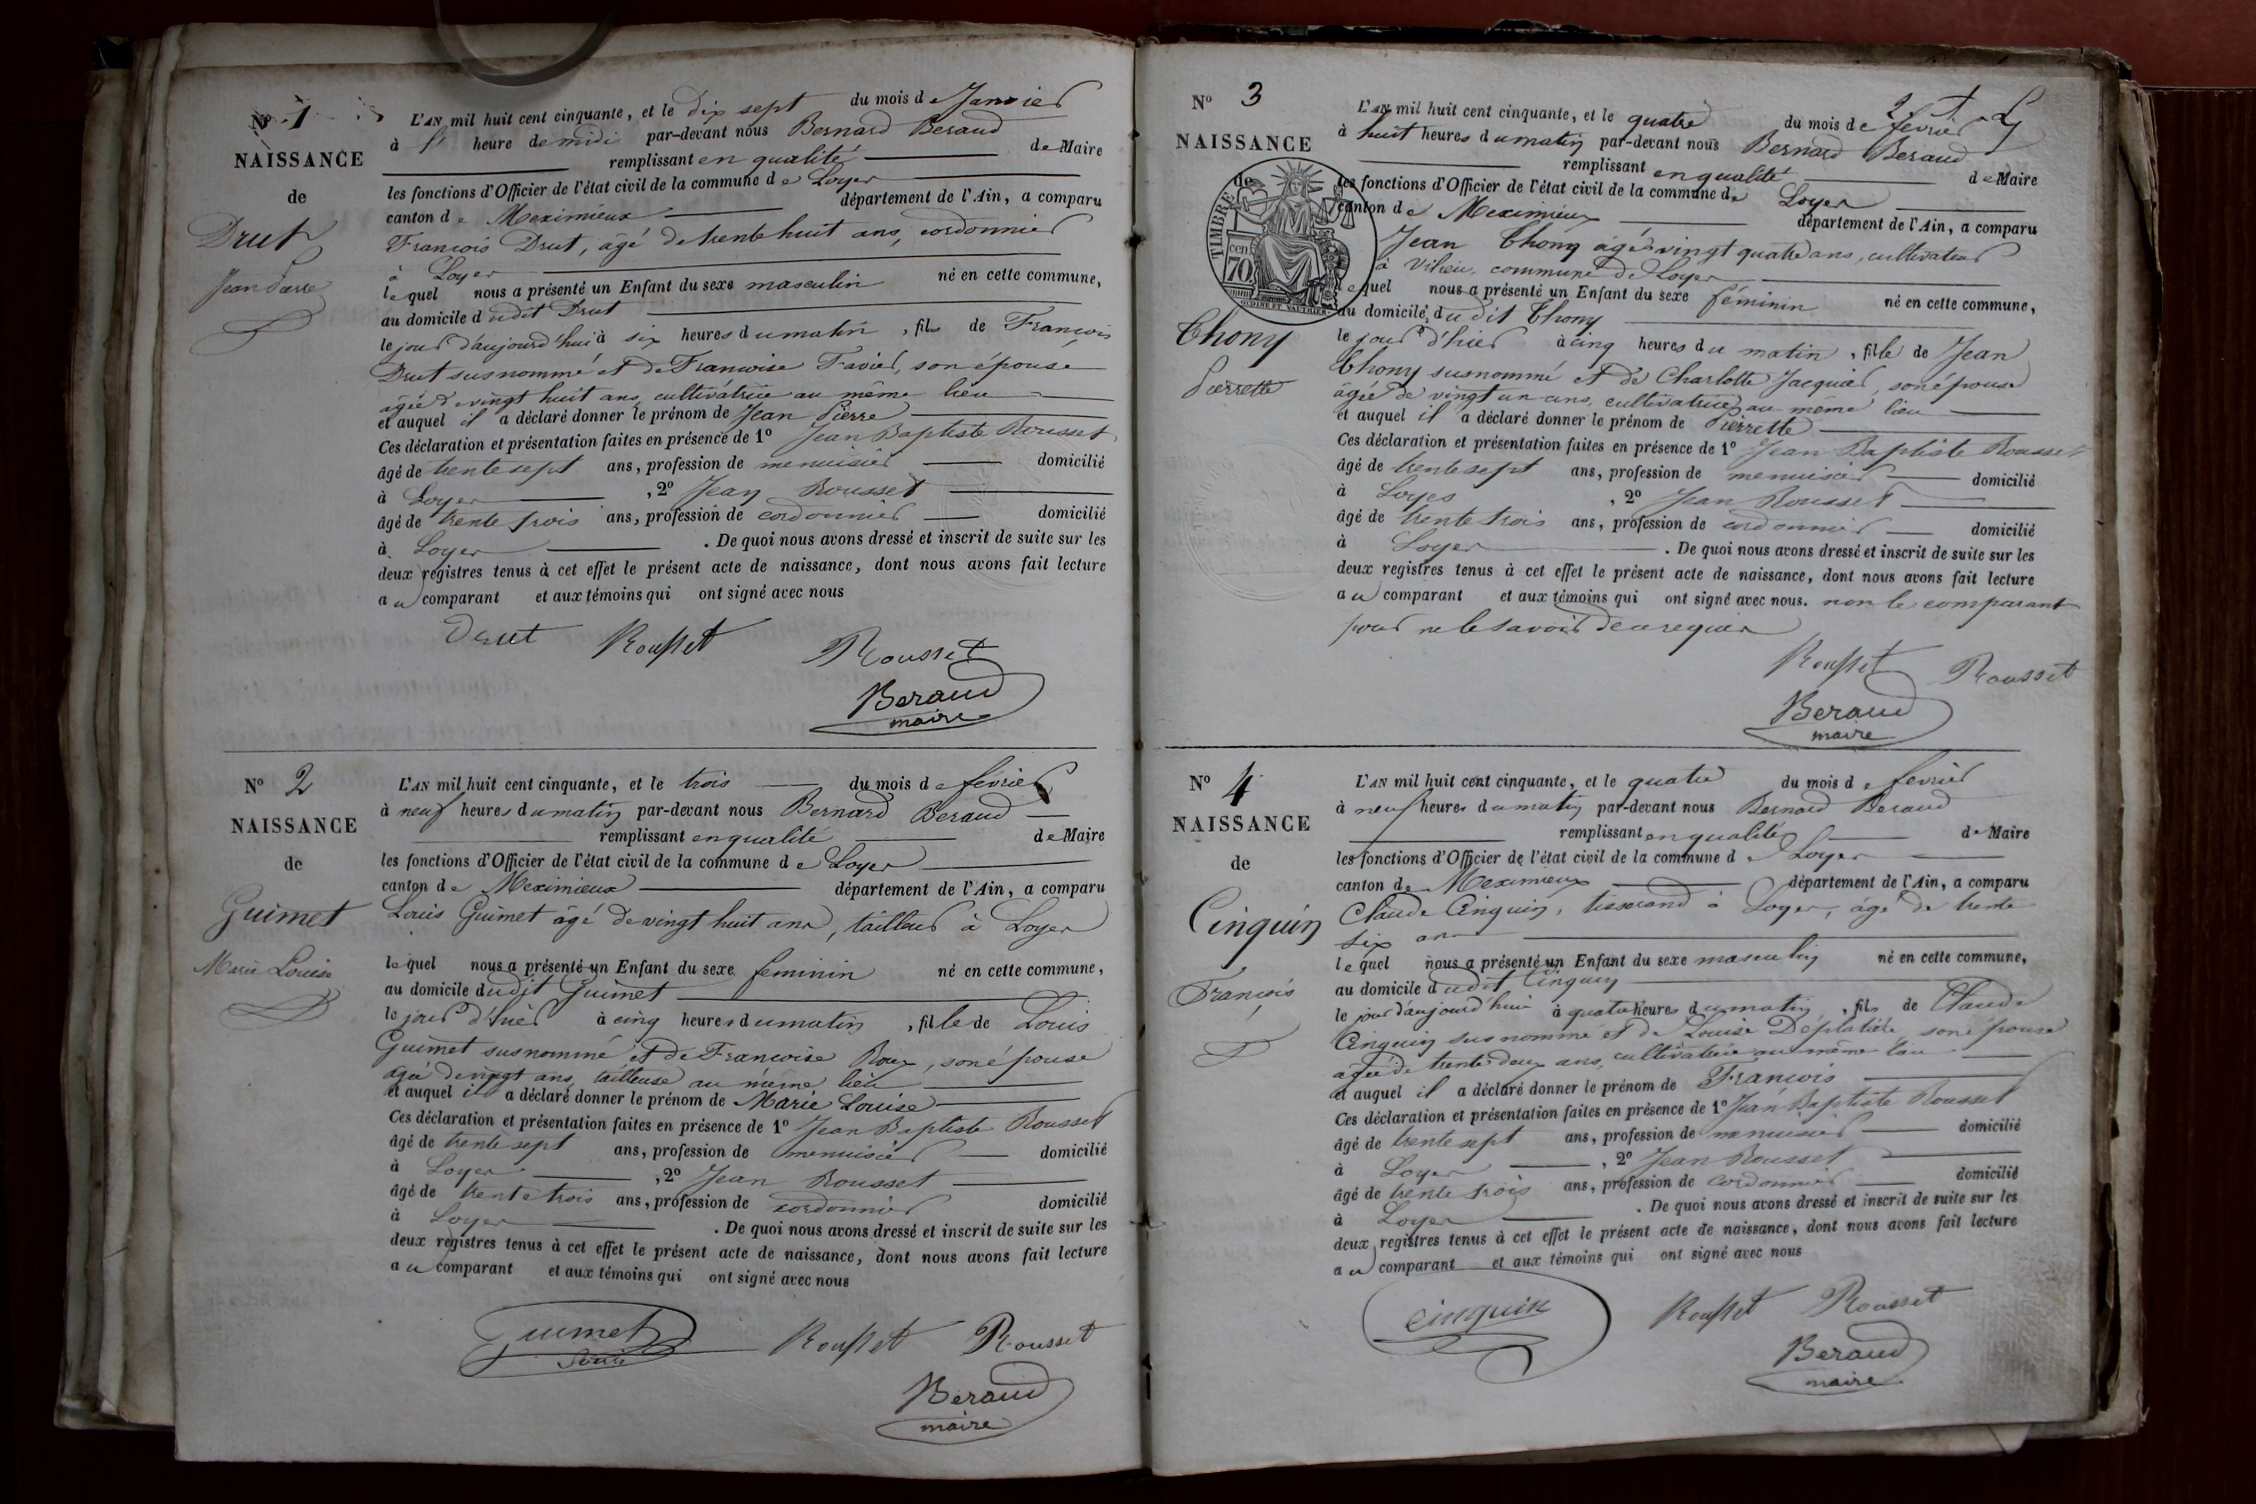 Nº 1
NAISSANCE
de
Drut
Jean Pierre
L'AN mil huit cent cinquante, et le dix sept du mois de Janvier
à heure de midi par-devant nous Bernard Beraud
remplissant en qualité de Maire
les fonctions d'Officier de l'état civil de la commune de Loyes
canton de Meximieux département de l'Ain, a comparu
François Drut, âgé de trente huit ans, cordonnier
à Loyes
lequel nous a présenté un Enfant du sexe masculin né en cette commune,
au domicile dudit Drut
le jour d'aujourd'hui à six heures du matin, fils de François
Drut susnommé et de Francoise Favier, son épouse
âgée de vingt huit ans, cultivatrice au même lieu
et auquel il a déclaré donner le prénom de Jean Pierre
Ces déclaration et présentation faites en présence de 1º Jean Baptiste Rousset
âgé de trente sept ans, profession de menuisier domicilié
à Loyes, 2º Jean Rousset
âgé de trente trois ans, profession de cordonnier domicilié
à Loyes. De quoi nous avons dressé et inscrit de suite sur les
deux registres tenus à cet effet le présent acte de naissance, dont nous avons fait lecture
au comparant et aux témoins qui ont signé avec nous
Drut Rousset Rousset
Beraud
maire
Nº 2
NAISSANCE
de
Guimet
Marie Louise
L'AN mil huit cent cinquante, et le trois du mois de fevrier
à neuf heures du matin par-devant nous Bernard Beraud
remplissant en qualité de Maire
les fonctions d'Officier de l'état civil de la commune de Loyes
canton de Meximieux département de l'Ain, a comparu
Louis Guimet âgé de vingt huit ans, tailleur à Loyes
lequel nous a présenté un Enfant du sexe feminin né en cette commune,
au domicile dudit Guimet
le jour d'hier à cinq heures du matin, fille de Louis
Guimet susnommé et de Francoise Roux, son épouse
âgée de vingt ans, tailleuse au même lieu
et auquel il a déclaré donner le prénom de Marie Louise
Ces déclaration et présentation faites en présence de 1º Jean Baptiste Rousset
âgé de trente sept ans, profession de menuisier domicilié
à Loyes, 2º Jean Rousset
âgé de trente trois ans, profession de cordonnier domicilié
à Loyes. De quoi nous avons dressé et inscrit de suite sur les
deux registres tenus à cet effet le présent acte de naissance, dont nous avons fait lecture
au comparant et aux témoins qui ont signé avec nous
Guimet Rousset Rousset
Louis
Beraud
maire
Nº 3
NAISSANCE
de
TIMBRE
cen
70
Thony
Pierrette
L'AN mil huit cent cinquante, et le quatre du mois de fevrier
à huit heures du matin par-devant nous Bernard Beraud
remplissant en qualité de Maire
les fonctions d'Officier de l'état civil de la commune de Loyes
canton de Meximieux département de l'Ain, a comparu
Jean Thony âgé vingt quatre ans, cultivateur
à Vilieu, commune de Loyes
lequel nous a présenté un Enfant du sexe féminin né en cette commune,
au domicile dudit Thony
le jour d'hier à cinq heures du matin, fille de Jean
Thony susnommé et de Charlotte Jacquier, son épouse
âgée de vingt un ans, cultivatrice au même lieu
et auquel il a déclaré donner le prénom de Pierrette
Ces déclaration et présentation faites en présence de 1º Jean Baptiste Rousset
âgé de trente sept ans, profession de menuisier domicilié
à Loyes, 2º Jean Rousset
âgé de trente trois ans, profession de cordonnier domicilié
à Loyes. De quoi nous avons dressé et inscrit de suite sur les
deux registres tenus à cet effet le présent acte de naissance, dont nous avons fait lecture
au comparant et aux témoins qui ont signé avec nous. non le comparant
pour ne le savoir de ce requis
Rousset Rousset
Beraud
maire
Nº 4
NAISSANCE
de
Cinquin
François
L'AN mil huit cent cinquante, et le quatre du mois de fevrier
à neuf heures du matin par-devant nous Bernard Beraud
remplissant en qualité de Maire
les fonctions d'Officier de l'état civil de la commune de Loyes
canton de Meximieux département de l'Ain, a comparu
Claude Cinquin, tisserand à Loyes, âgé de trente
six ans
lequel nous a présenté un Enfant du sexe masculin né en cette commune,
au domicile dudit Cinquin
le jour d'aujourd'hui à quatre heures du matin, fils de Claude
Cinquin susnommé et de Louise Déplatière son épouse
âgée de trente deux ans, cultivatrice au même lieu
et auquel il a déclaré donner le prénom de François
Ces déclaration et présentation faites en présence de 1º Jean Baptiste Rousset
âgé de trente sept ans, profession de menuisier domicilié
à Loyes, 2º Jean Rousset
âgé de trente trois ans, profession de cordonnier domicilié
à Loyes. De quoi nous avons dressé et inscrit de suite sur les
deux registres tenus à cet effet le présent acte de naissance, dont nous avons fait lecture
au comparant et aux témoins qui ont signé avec nous
Cinquin Rousset Rousset
Beraud
maire